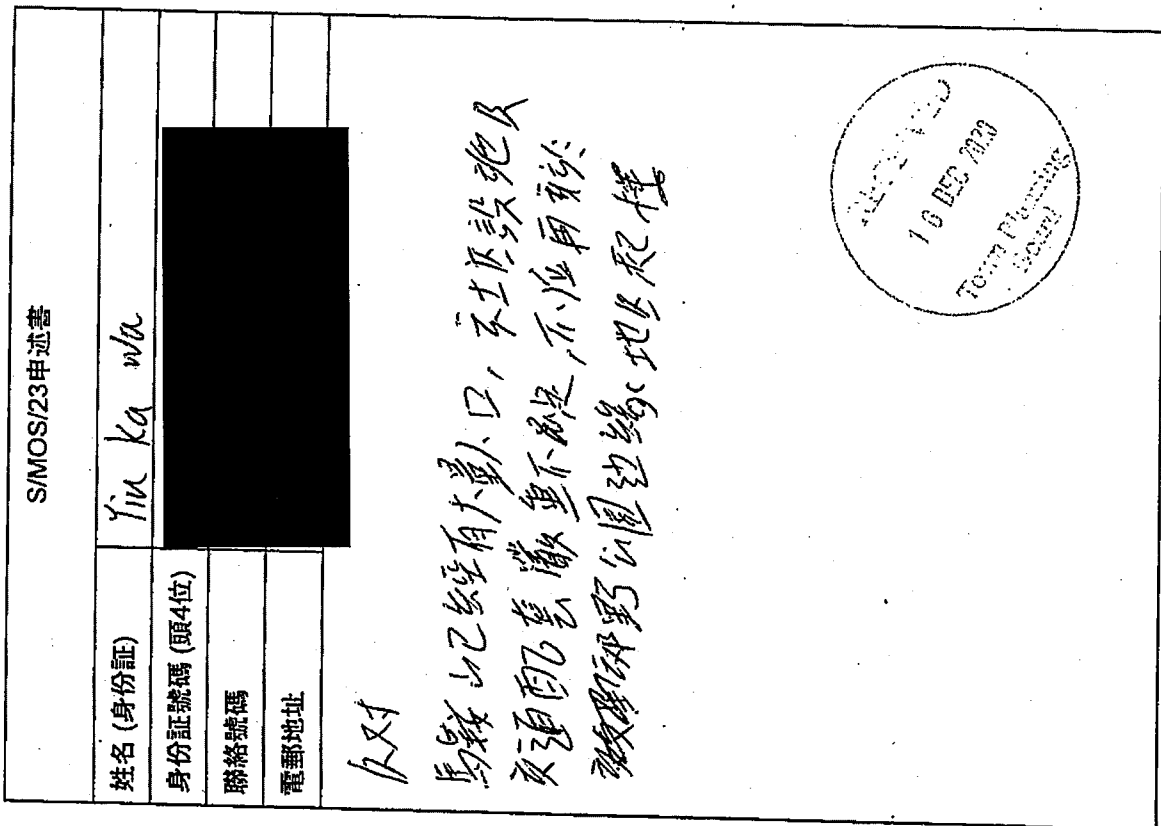 S/MOS/23申述書
姓名 (身份証)
Yiu Ka Wa
身份証號碼 (頭4位)
聯絡號碼
電郵地址
反対
馬鞍山已經有大量人口, 市社區設施及
交通配套嚴重不敷, 不应再
郊野公園边緣地区起樓
RECEIVED
10 DEC 2020
Town Planning
Board